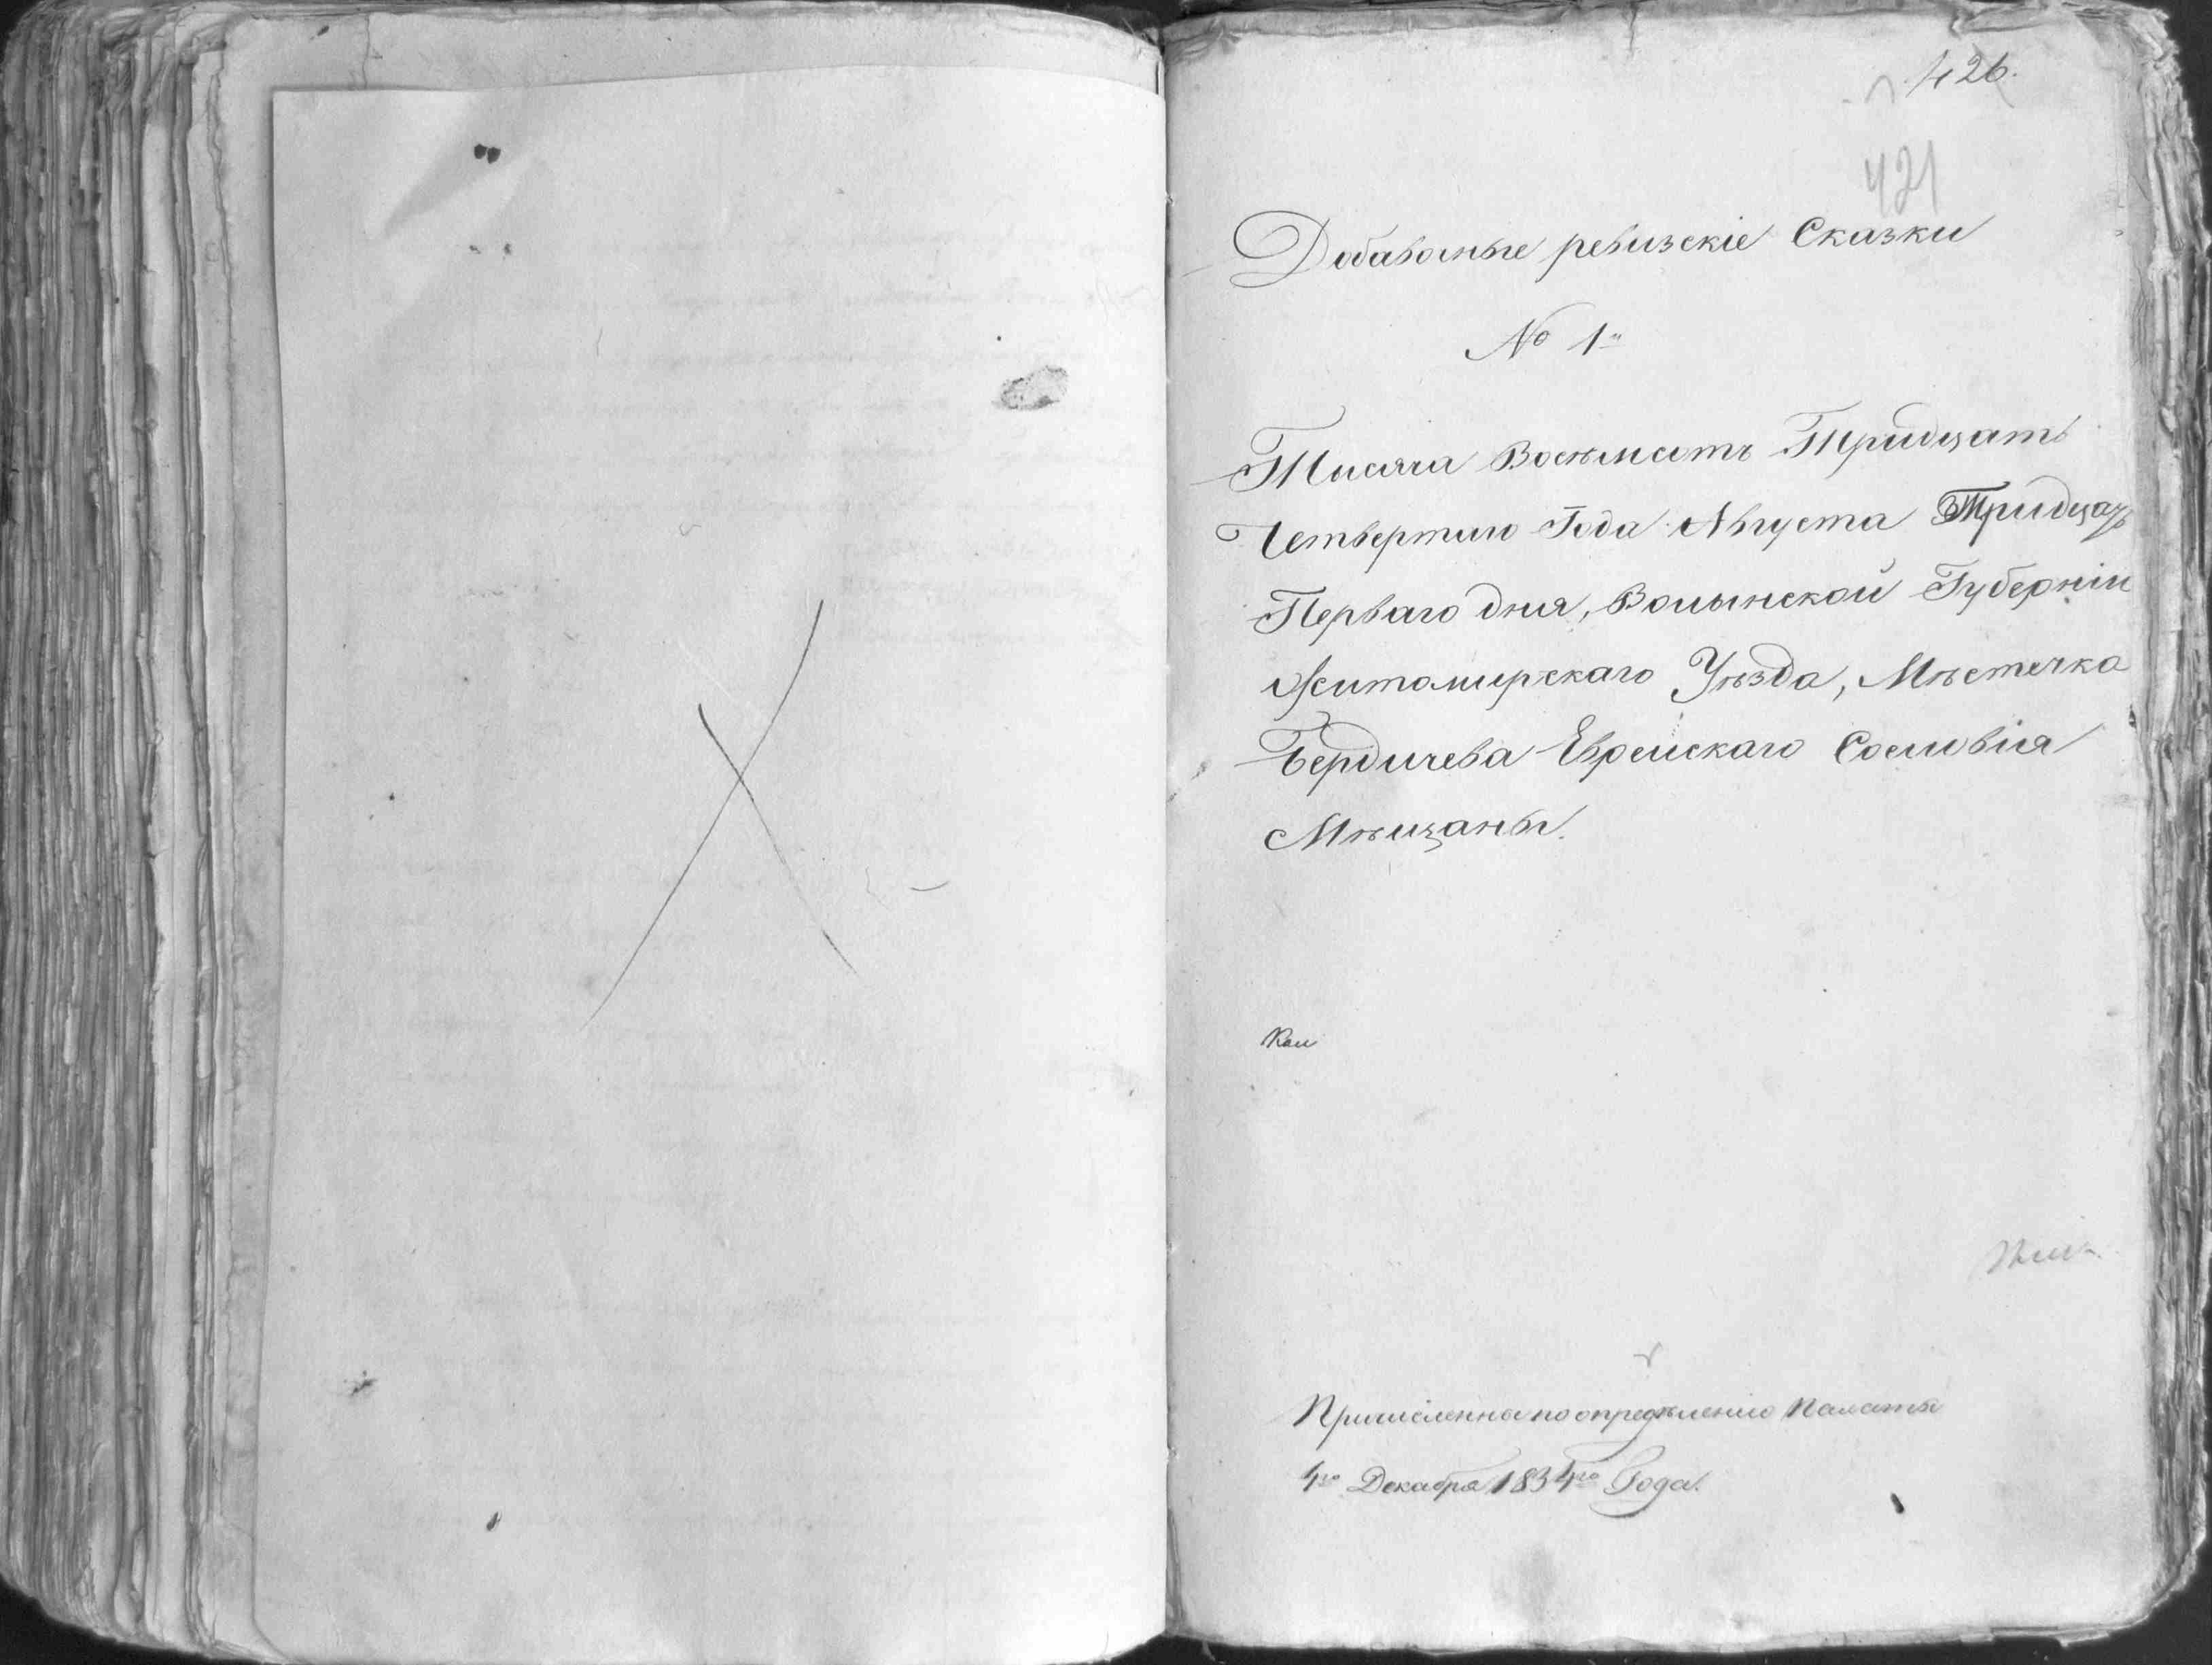 426.
421
Добавочные ревизскіе Сказки
№ 1й
Тысяча Восѣмсотъ Тридцать
Четвертаго Года Августа Тридцать
Перваго дня, Волынской Губерніи
Житомирскаго Уѣзда, Мѣстечка
Бердичева Еврейскаго Сословія
Мѣщаны.
Причисленные по опредѣленію Палаты
4го Декабря 1834го Года.